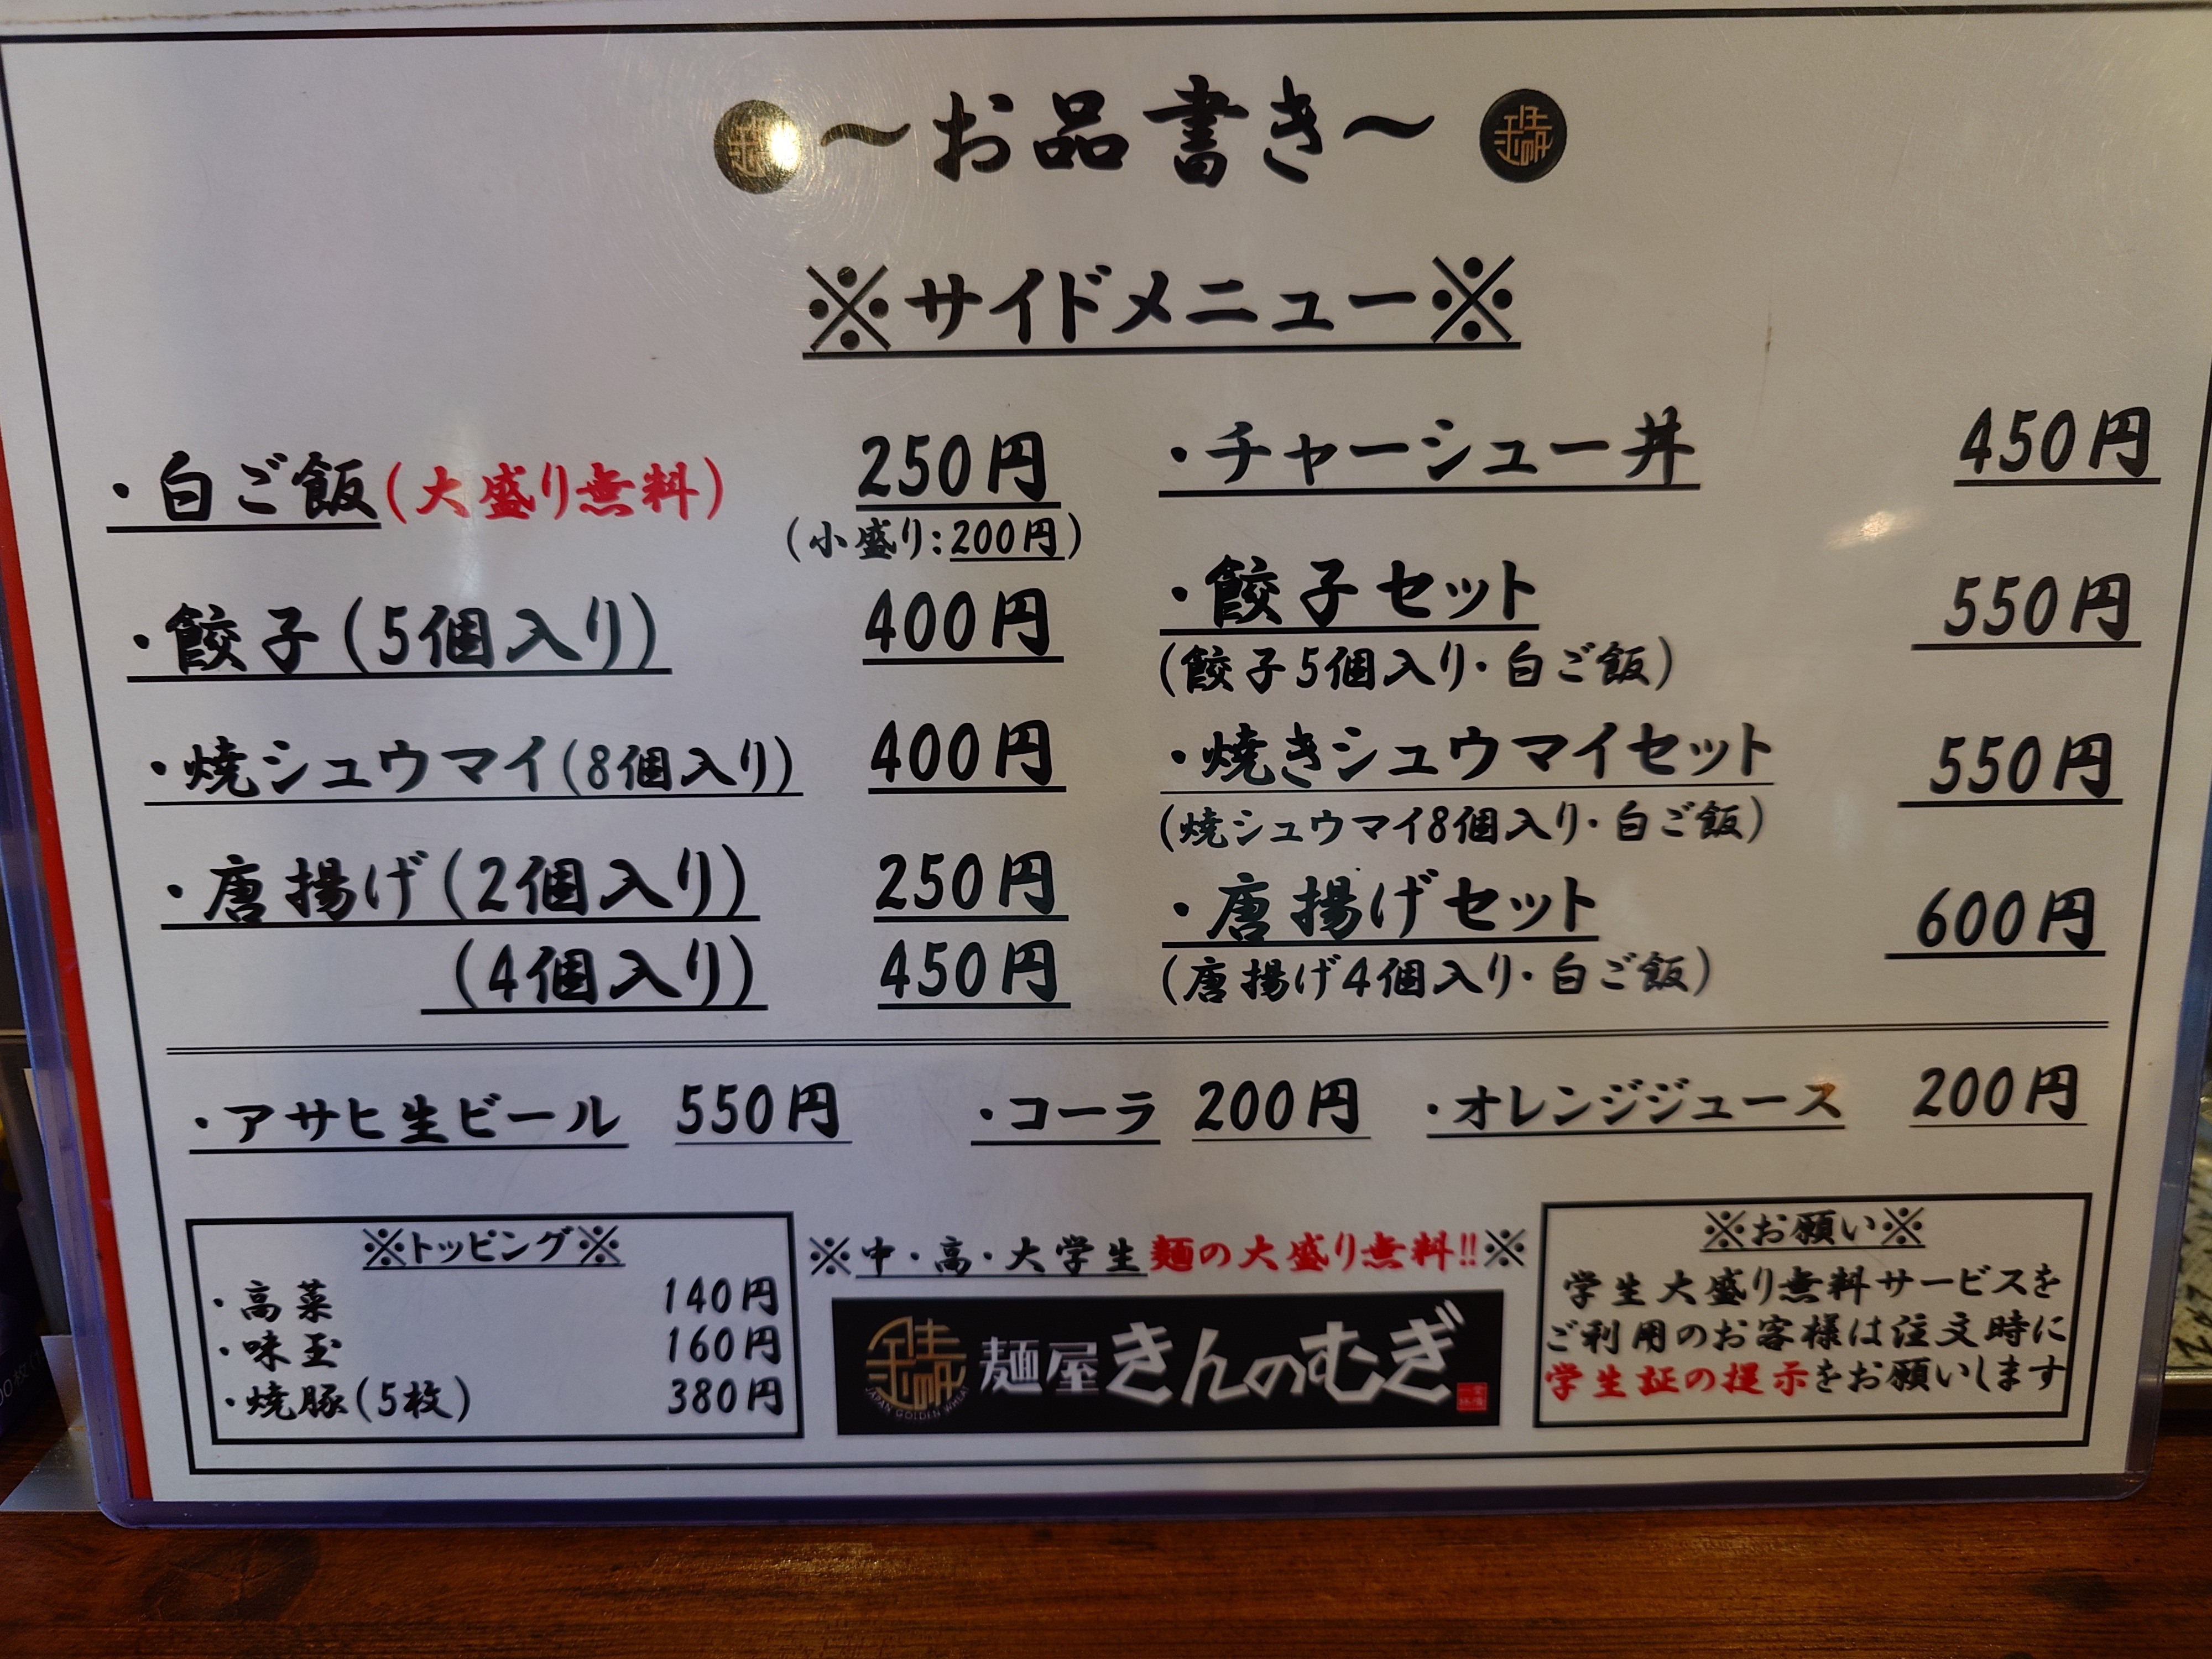 ～お品書き～
※サイドメニュー※
・白ご飯(大盛り無料) 250円
(小盛り:200円)
・餃子(5個入り) 400円
・焼シュウマイ(8個入り) 400円
・唐揚げ(2個入り) 250円
(4個入り) 450円
・チャーシュー丼 450円
・餃子セット 550円
(餃子5個入り・白ご飯)
・焼きシュウマイセット 550円
(焼シュウマイ8個入り・白ご飯)
・唐揚げセット 600円
(唐揚げ4個入り・白ご飯)
・アサヒ生ビール 550円 ・コーラ 200円 ・オレンジジュース 200円
※トッピング※
・高菜 140円
・味玉 160円
・焼豚(5枚) 380円
※中・高・大学生麺の大盛り無料!!※
麺屋きんのむぎ
JAPAN GOLDEN WHEAT
※お願い※
学生大盛り無料サービスを
ご利用のお客様は注文時に
学生証の提示をお願いします